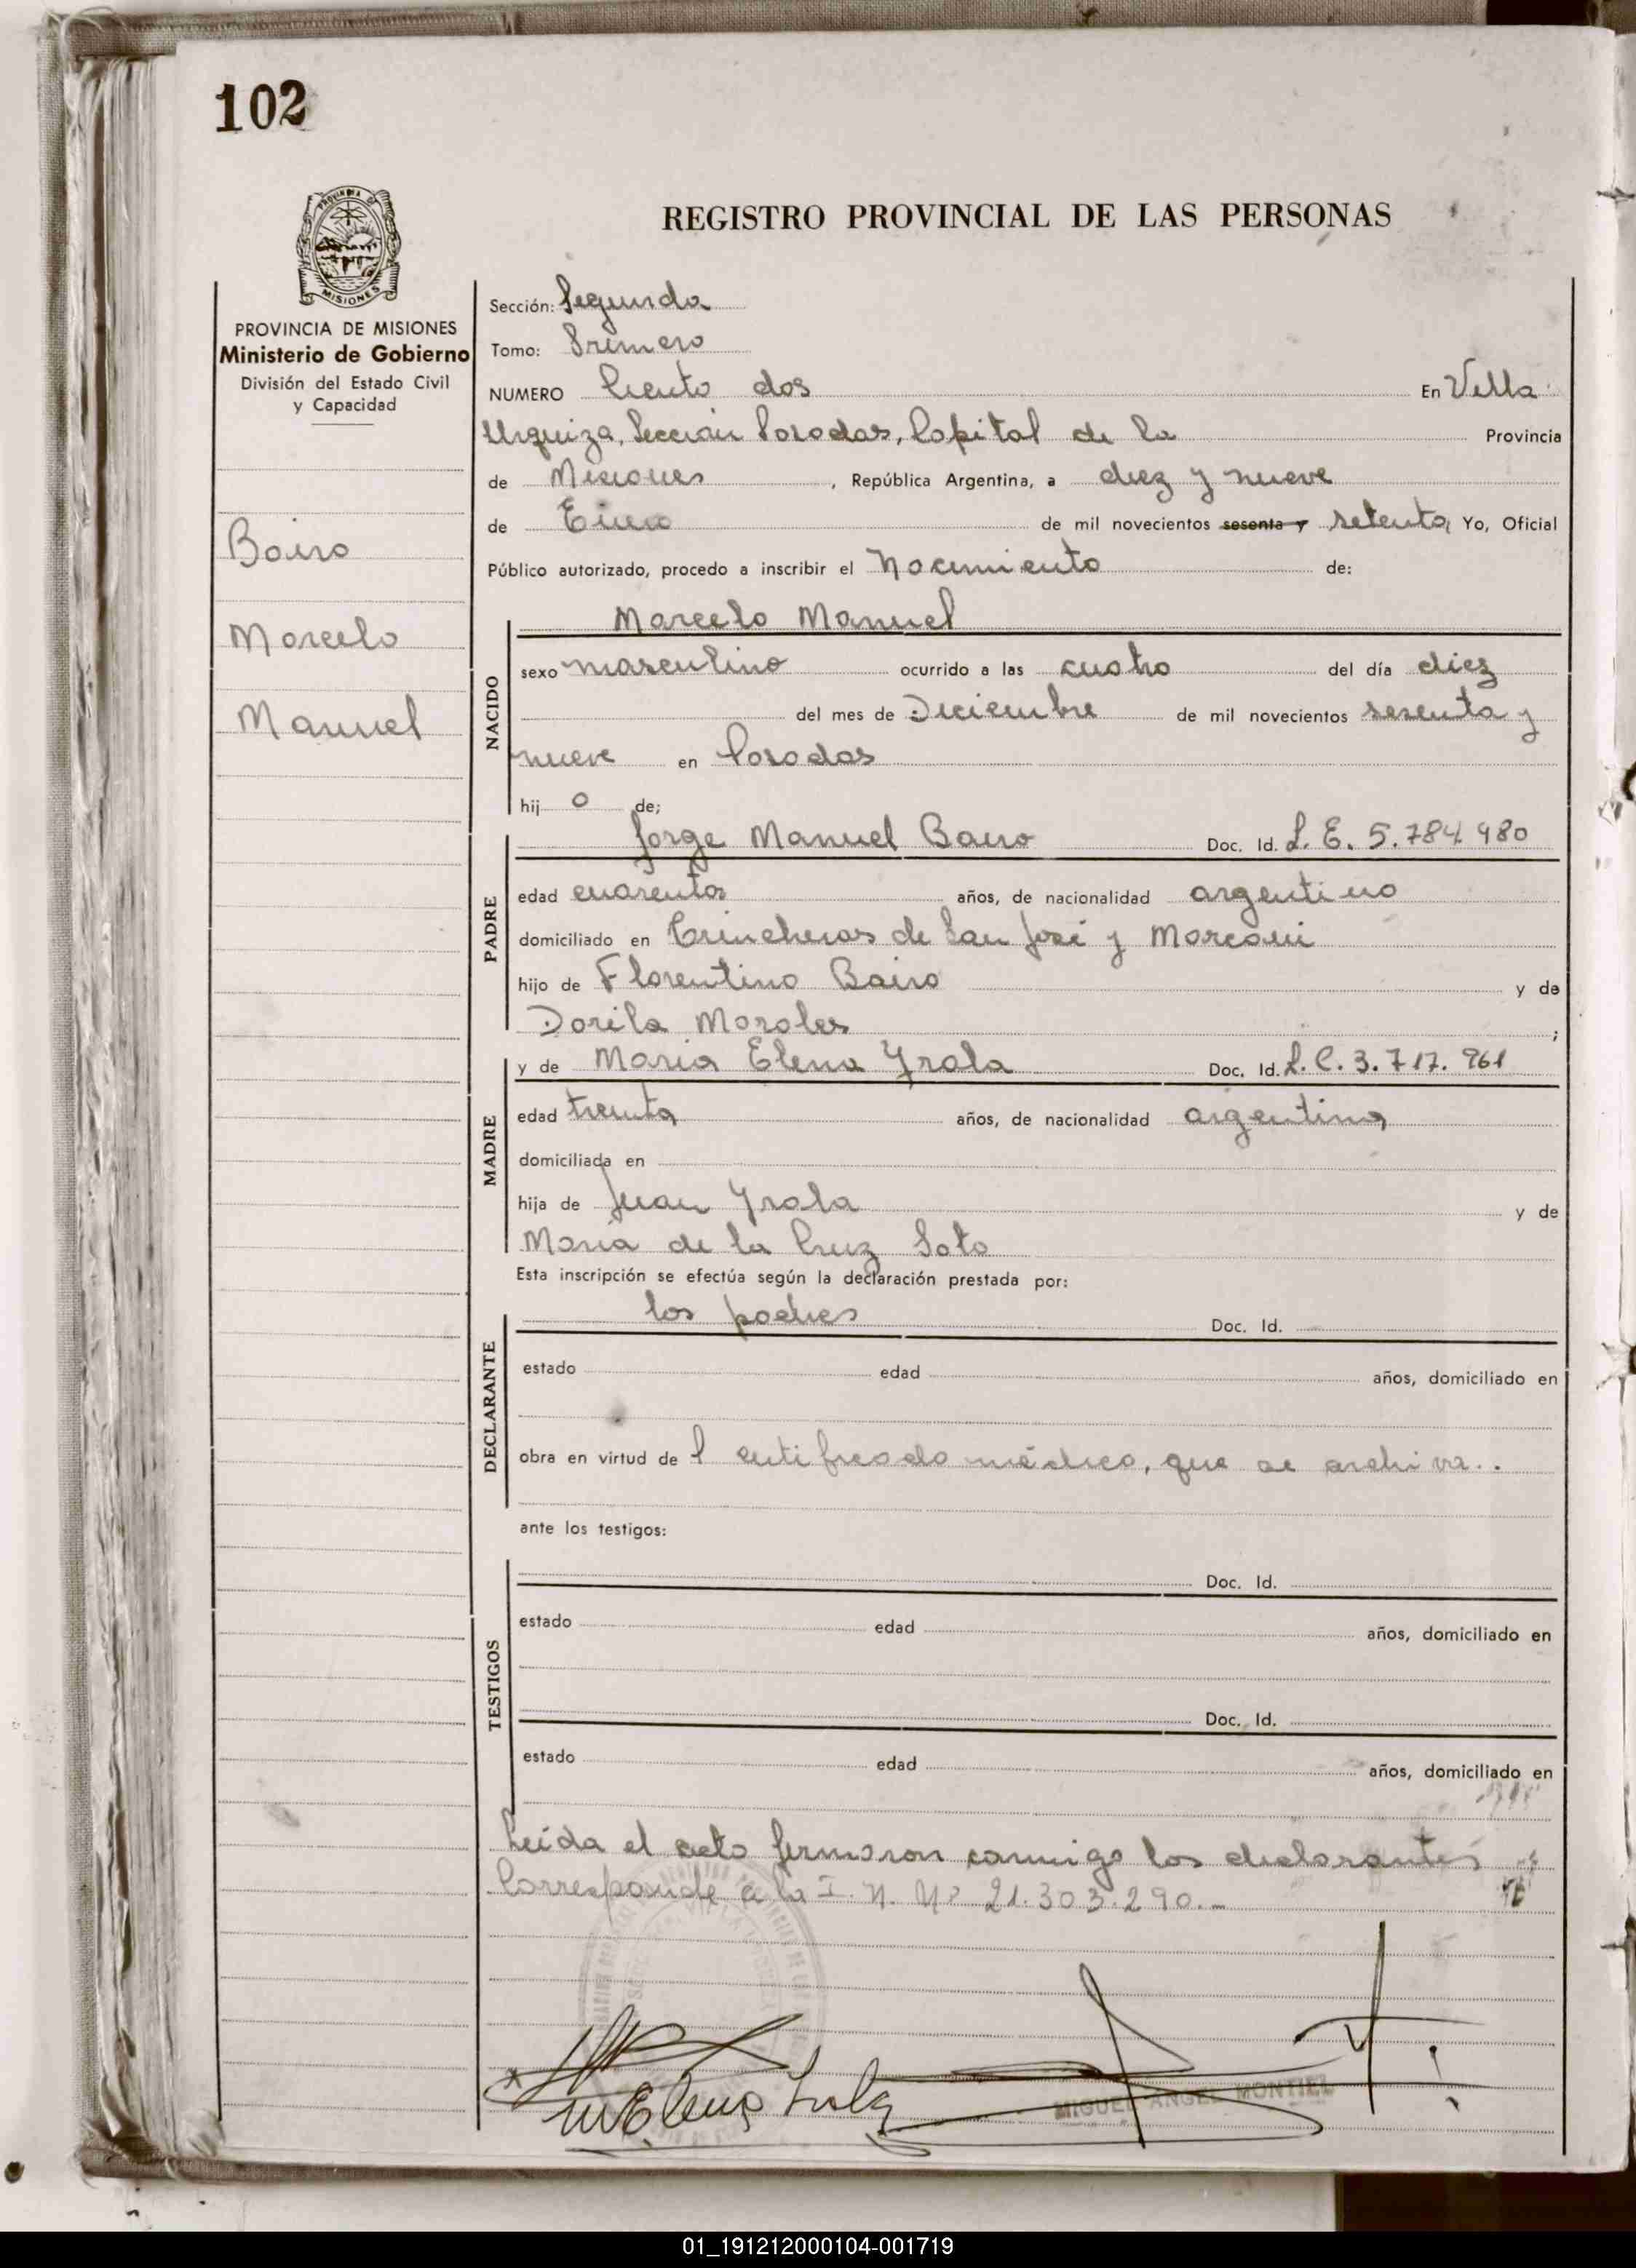 102
REGISTRO PROVINCIAL DE LAS PERSONAS
PROVINCIA DE MISIONES
Ministerio de Gobierno
División del Estado Civil
y Capacidad
Bairo
Marcelo
Manuel
Sección: Segunda
Tomo: Primero
NUMERO Ciento dos En Villa
Urquiza, Sección Posadas, Capital de la Provincia
de Misiones, República Argentina, a diez y nueve
de Enero de mil novecientos sesenta y setenta, Yo, Oficial
Público autorizado, procedo a inscribir el Nacimiento de:
Marcelo Manuel
NACIDO
sexo masculino ocurrido a las cuatro del día diez
del mes de Diciembre de mil novecientos sesenta y
nueve en Posadas
hij o de;
Jorge Manuel Bairo Doc. Id. L. E. 5.784.980
PADRE
edad cuarenta años, de nacionalidad argentino
domiciliado en Trincheras de San José y Marconi
hijo de Florentino Bairo y de
Dorila Morales ;
y de Maria Elena Yrala Doc. Id. L. C. 3.717.961
MADRE
edad treinta años, de nacionalidad argentina
domiciliada en
hija de Juan Yrala y de
Maria de la Cruz Soto
Esta inscripción se efectúa según la declaración prestada por:
los padres Doc. Id.
DECLARANTE
estado edad años, domiciliado en
obra en virtud de l certificado médico, que se archiva..
ante los testigos:
Doc. Id.
TESTIGOS
estado edad años, domiciliado en
Doc. Id.
estado edad años, domiciliado en
Leída el acta firmaron conmigo los declarantes
Corresponde a la I. N. Nº 21.303.290.-
MElena Irala
MIGUEL ANGEL MONTIEL
01_191212000104-001719